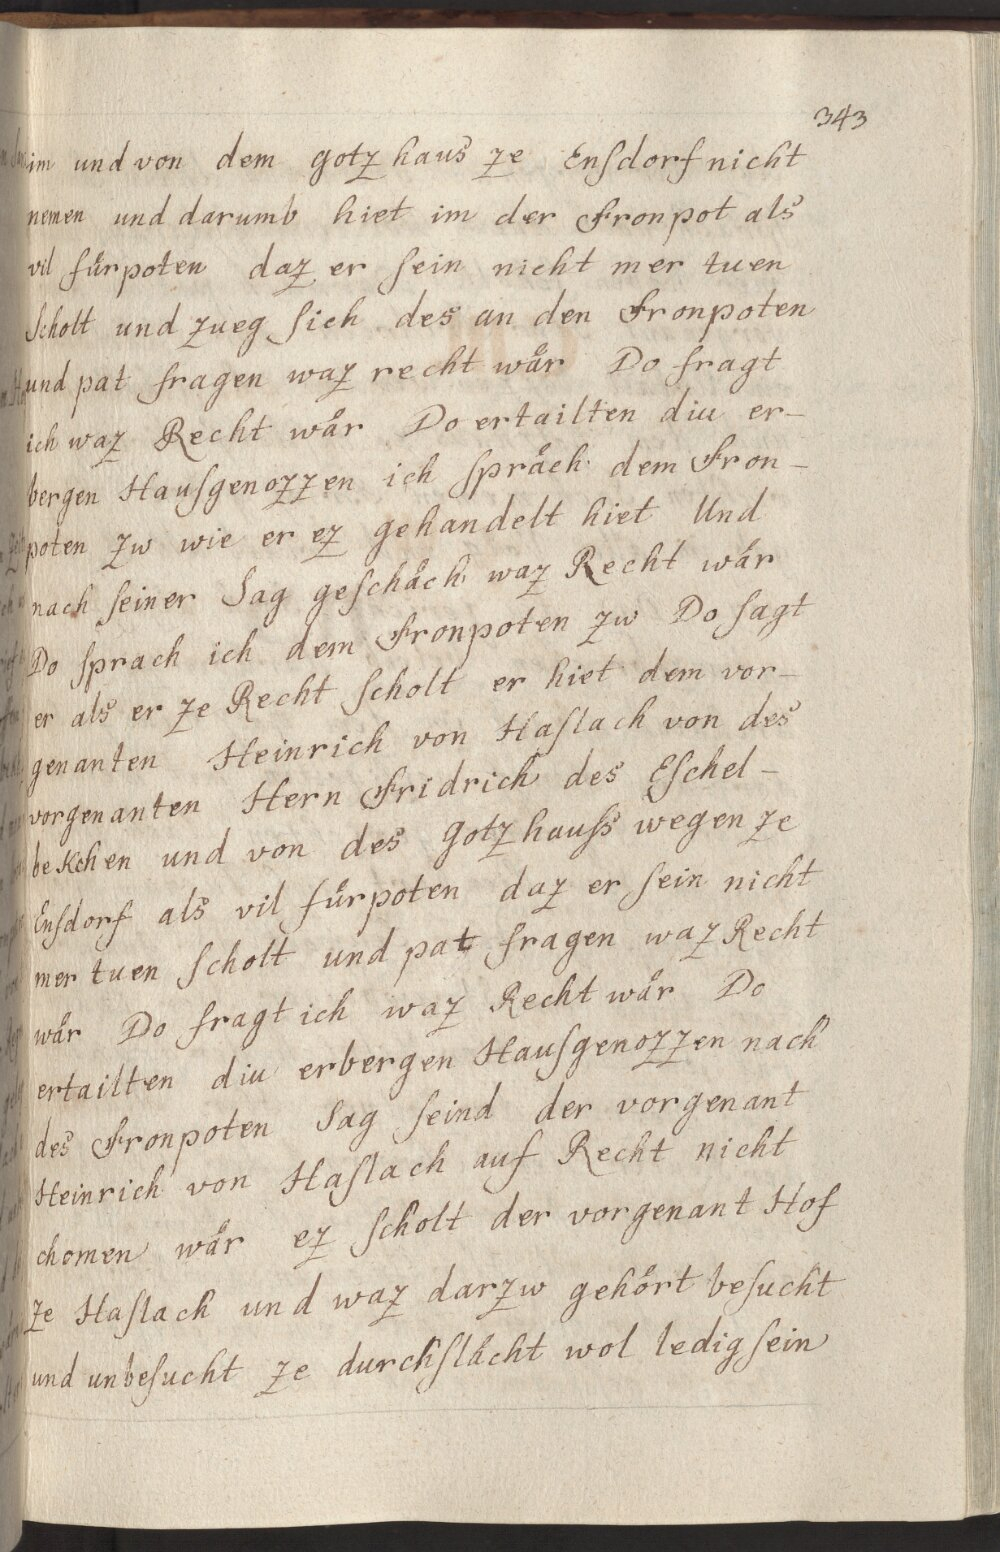 343
im und von dem gotzhaus ze Ensdorf nicht
nemen und darumb hiet im der Fronpot als
vil fůrpoten daz er sein nicht mer tuen
Scholt und zueg sich des an den Fronpoten
und pat fragen waz recht wår Do fragt
ich waz Recht wår Do ertailten diu er-
bergen Hausgenozzen ich språch dem Fron-
poten zw wie er ez gehandelt hiet Und
nach seiner Sag geschåch waz Recht wår
Do sprach ich dem Fronpoten zw Do sagt
er als er ze Recht scholt er hiet dem vor-
genanten Heinrich von Haslach von des
vorgenanten Hern Fridrich des Eschel-
beKchen und von des Gotzhauss wegen ze
Ensdorf als vil fůrpoten daz er sein nicht
mer tuen scholt und pat fragen waz Recht
wår Do fragt ich waz Recht wår Do
ertailten diu erbergen Hausgenozzen nach
des Fronpoten Sag seind der vorgenant
Heinrich von Haslach auf Recht nicht
chomen wår ez scholt der vorgenant Hof
ze Haslach und waz darzw gehőrt besucht
und unbesucht ze durchslåcht wol ledig sein